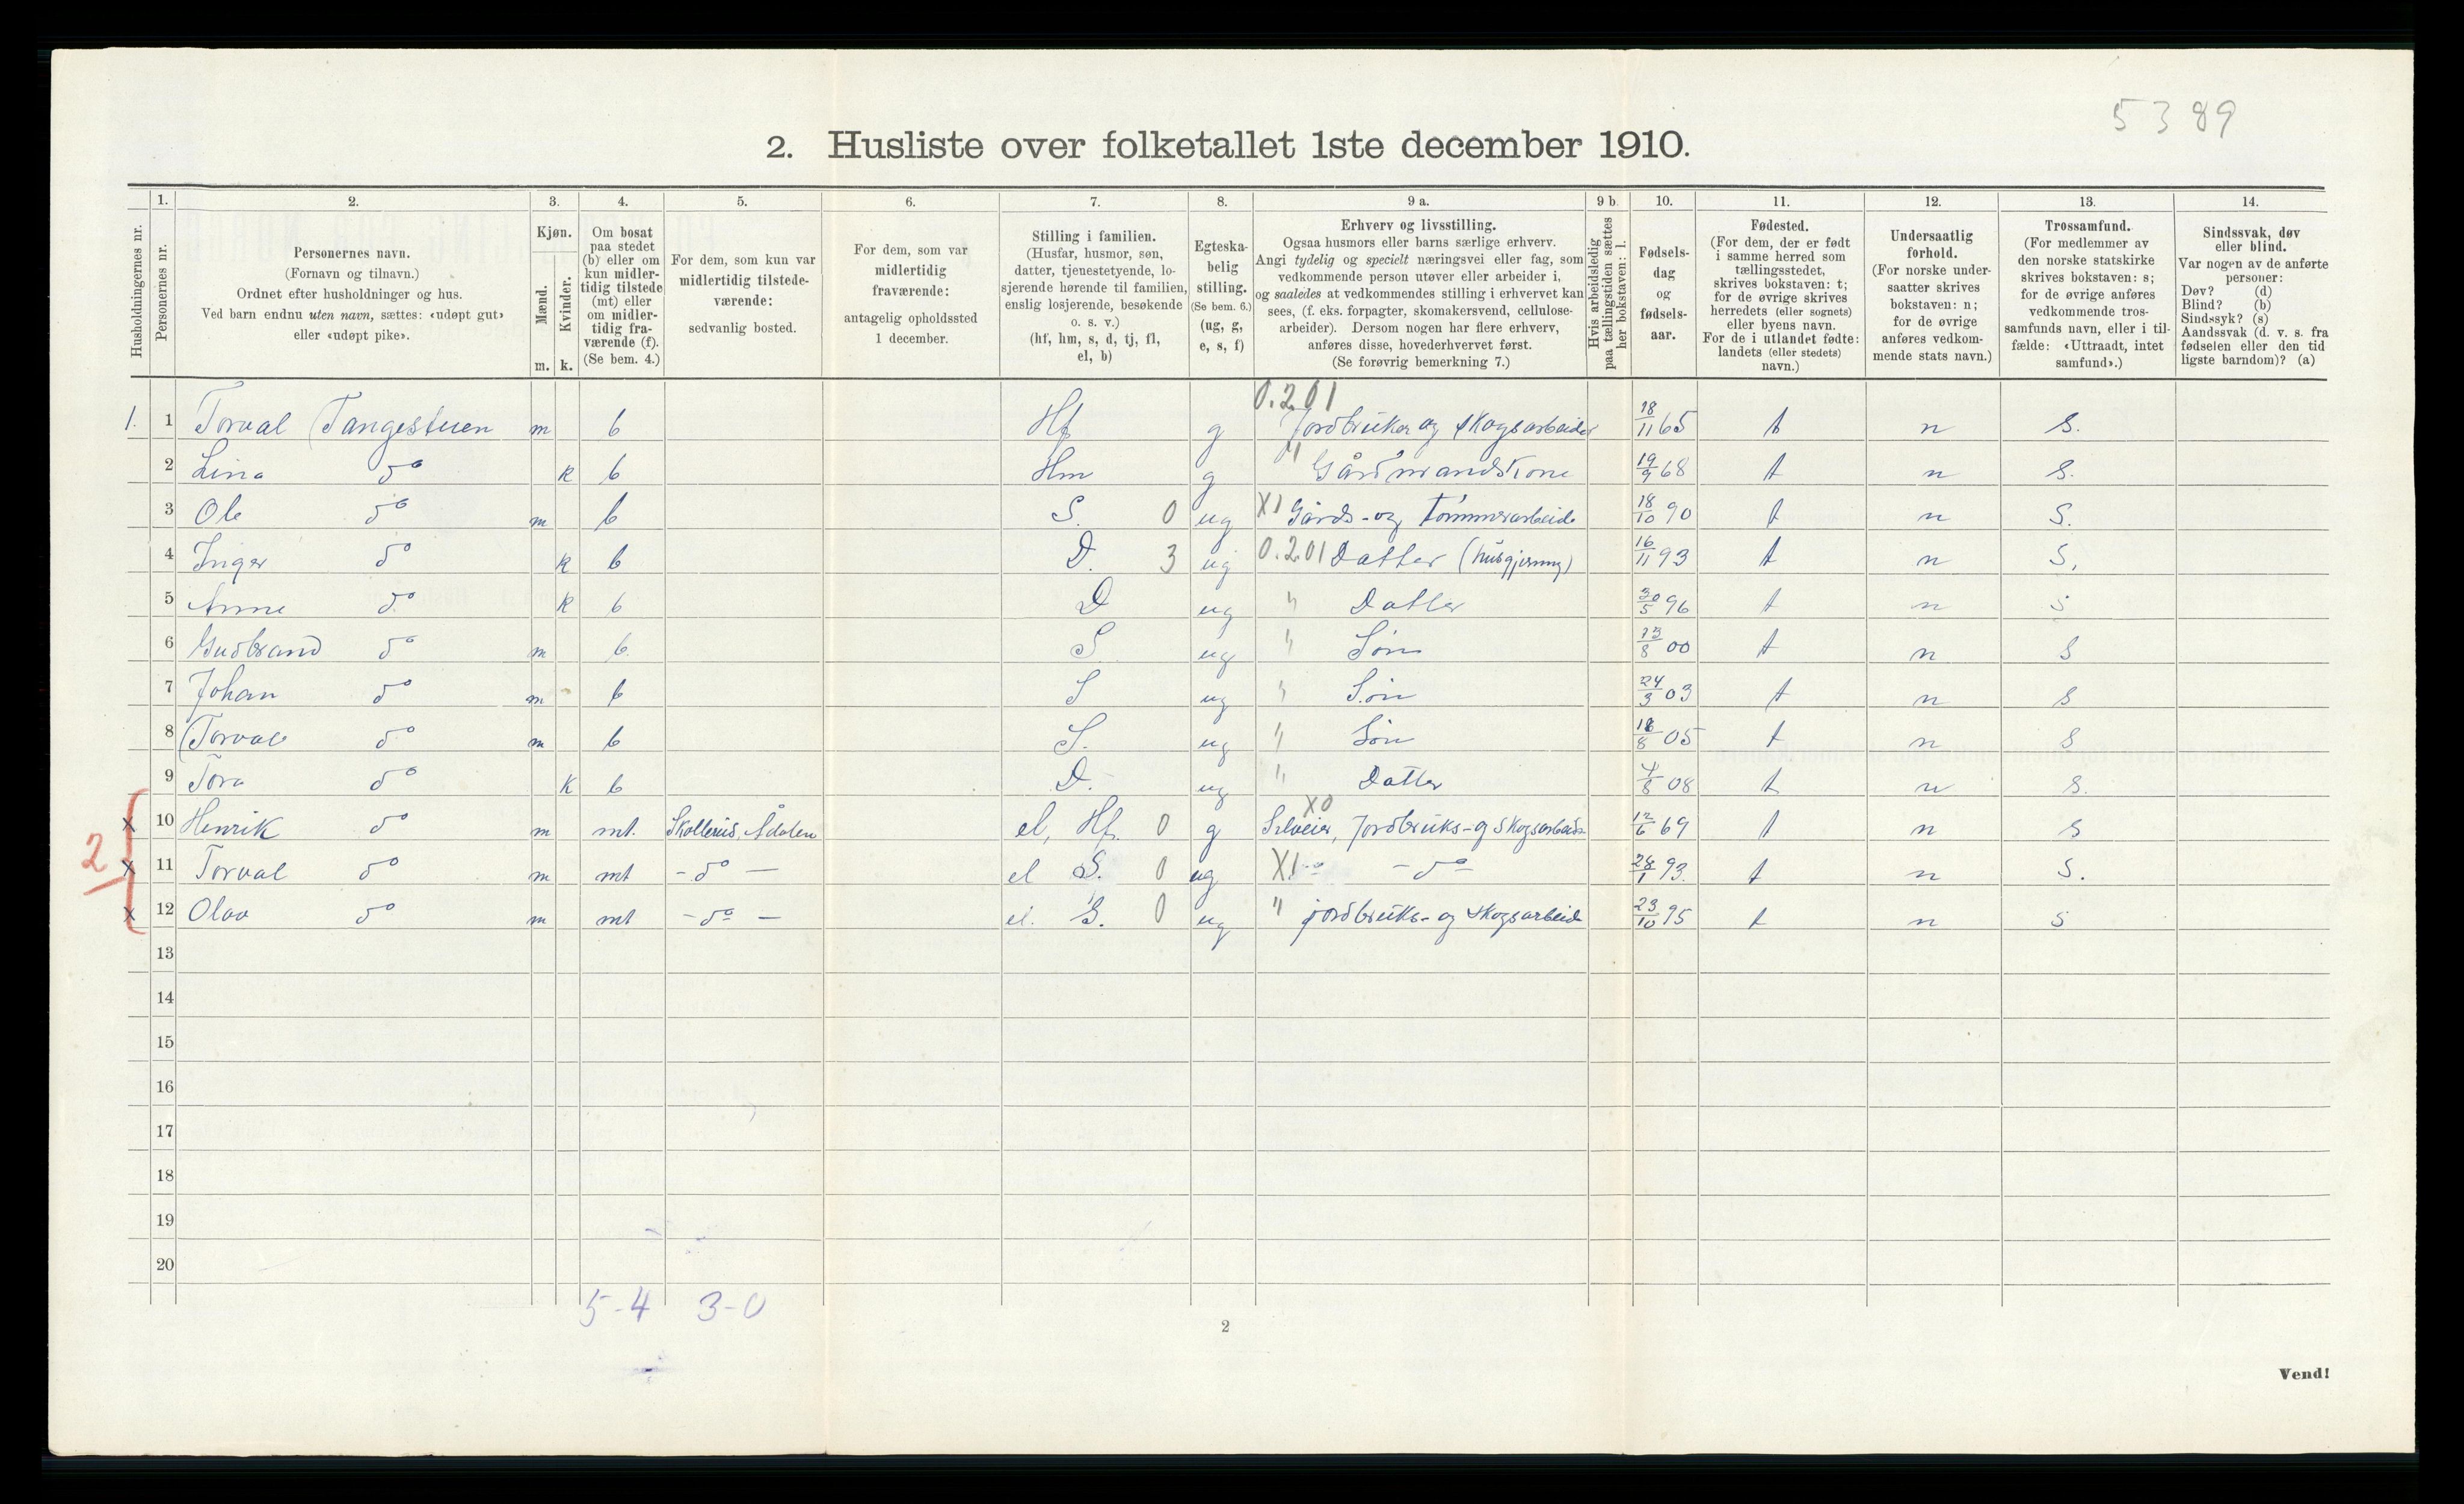 5389
2. Husliste over folketallet 1ste december 1910.
Husholdningernes nr.
1. Personernes nr.
2. Personernes navn.
(Fornavn og tilnavn.)
Ordnet efter husholdninger og hus.
Ved barn endnu uten navn, sættes: «udøpt gut»
eller «udøpt pike».
3. Kjøn.
Mænd. Kvinder.
m. k.
4. Om bosat
paa stedet
(b) eller om
kun midler-
tidig tilstede
(mt) eller
om midler-
tidig fra-
værende (f).
(Se bem. 4.)
5. For dem, som kun var
midlertidig tilstede-
værende:
sedvanlig bosted.
6. For dem, som var
midlertidig
fraværende:
antagelig opholdssted
1 december.
7. Stilling i familien.
(Husfar, husmor, søn,
datter, tjenestetyende, lo-
sjerende hørende til familien,
enslig losjerende, besøkende
o. s. v.)
(hf, hm, s, d, tj, fl,
el, b)
8. Egteska-
belig
stilling.
(Se bem. 6.)
(ug, g,
e, s, f)
9 a. Erhverv og livsstilling.
Ogsaa husmors eller barns særlige erhverv.
Angi tydelig og specielt næringsvei eller fag, som
vedkommende person utøver eller arbeider i,
og saaledes at vedkommendes stilling i erhvervet kan
sees, (f. eks. forpagter, skomakersvend, cellulose-
arbeider). Dersom nogen har flere erhverv,
anføres disse, hovederhvervet først.
(Se forøvrig bemerkning 7.)
9 b. Hvis arbeidsledig
paa tællingstiden sættes
her bokstaven: l.
10. Fødsels-
dag
og
fødsels-
aar.
11. Fødested.
(For dem, der er født
i samme herred som
tællingsstedet,
skrives bokstaven: t;
for de øvrige skrives
herredets (eller sognets)
eller byens navn.
For de i utlandet fødte:
landets (eller stedets)
navn.)
12. Undersaatlig
forhold.
(For norske under-
saatter skrives
bokstaven: n;
for de øvrige
anføres vedkom-
mende stats navn.)
13. Trossamfund.
(For medlemmer av
den norske statskirke
skrives bokstaven: s;
for de øvrige anføres
vedkommende tros-
samfunds navn, eller i til-
fælde: «Uttraadt, intet
samfund».)
14. Sindssvak, døv
eller blind.
Var nogen av de anførte
personer:
Døv? (d)
Blind? (b)
Sindssyk? (s)
Aandssvak (d. v. s. fra
fødselen eller den tid-
ligste barndom)? (a)
0.201
1. 1 Torval Tangestuen m b Hf g Jordbruker og skogsarbeider 18/11 65 t n S.
2 Lina do k b Hm g " Gårdmandskone 19/9 68 t n S.
3 Ole do m b S. 0 ug X1 Gårds- og tømmerarbeide 18/10 90 t n S.
4 Inger do k b D. 3 ug 0.201 Datter (husgjerning) 16/11 93 t n S.
5 Anne do k b D ug " Datter 30/5 96 t n S
6 Gudbrand do m b. S ug " Søn 13/8 00 t n S
7 Johan do m b S ug " Søn 24/3 03 t n S
8 Torval do m b S. ug " Søn 18/8 05 t n S
9 Tora do k b D. ug " Datter 4/8 08 t n S.
X0
x 10 Henrik do m mt. Skollerud, Ådalen el, Hf. 0 g Selveier, Jordbruks- og skogsarbeide 12/6 69 t n S
2 x 11 Torval do m mt - do - el S. 0 ug X1 - do - 28/1 93. t n S.
x 12 Olav do m mt - do - el. S. 0 ug " jordbruks- og skogsarbeide 23/10 95 t n S
13
14
15
16
17
18
19
20
5-4 3-0
2
Vend!